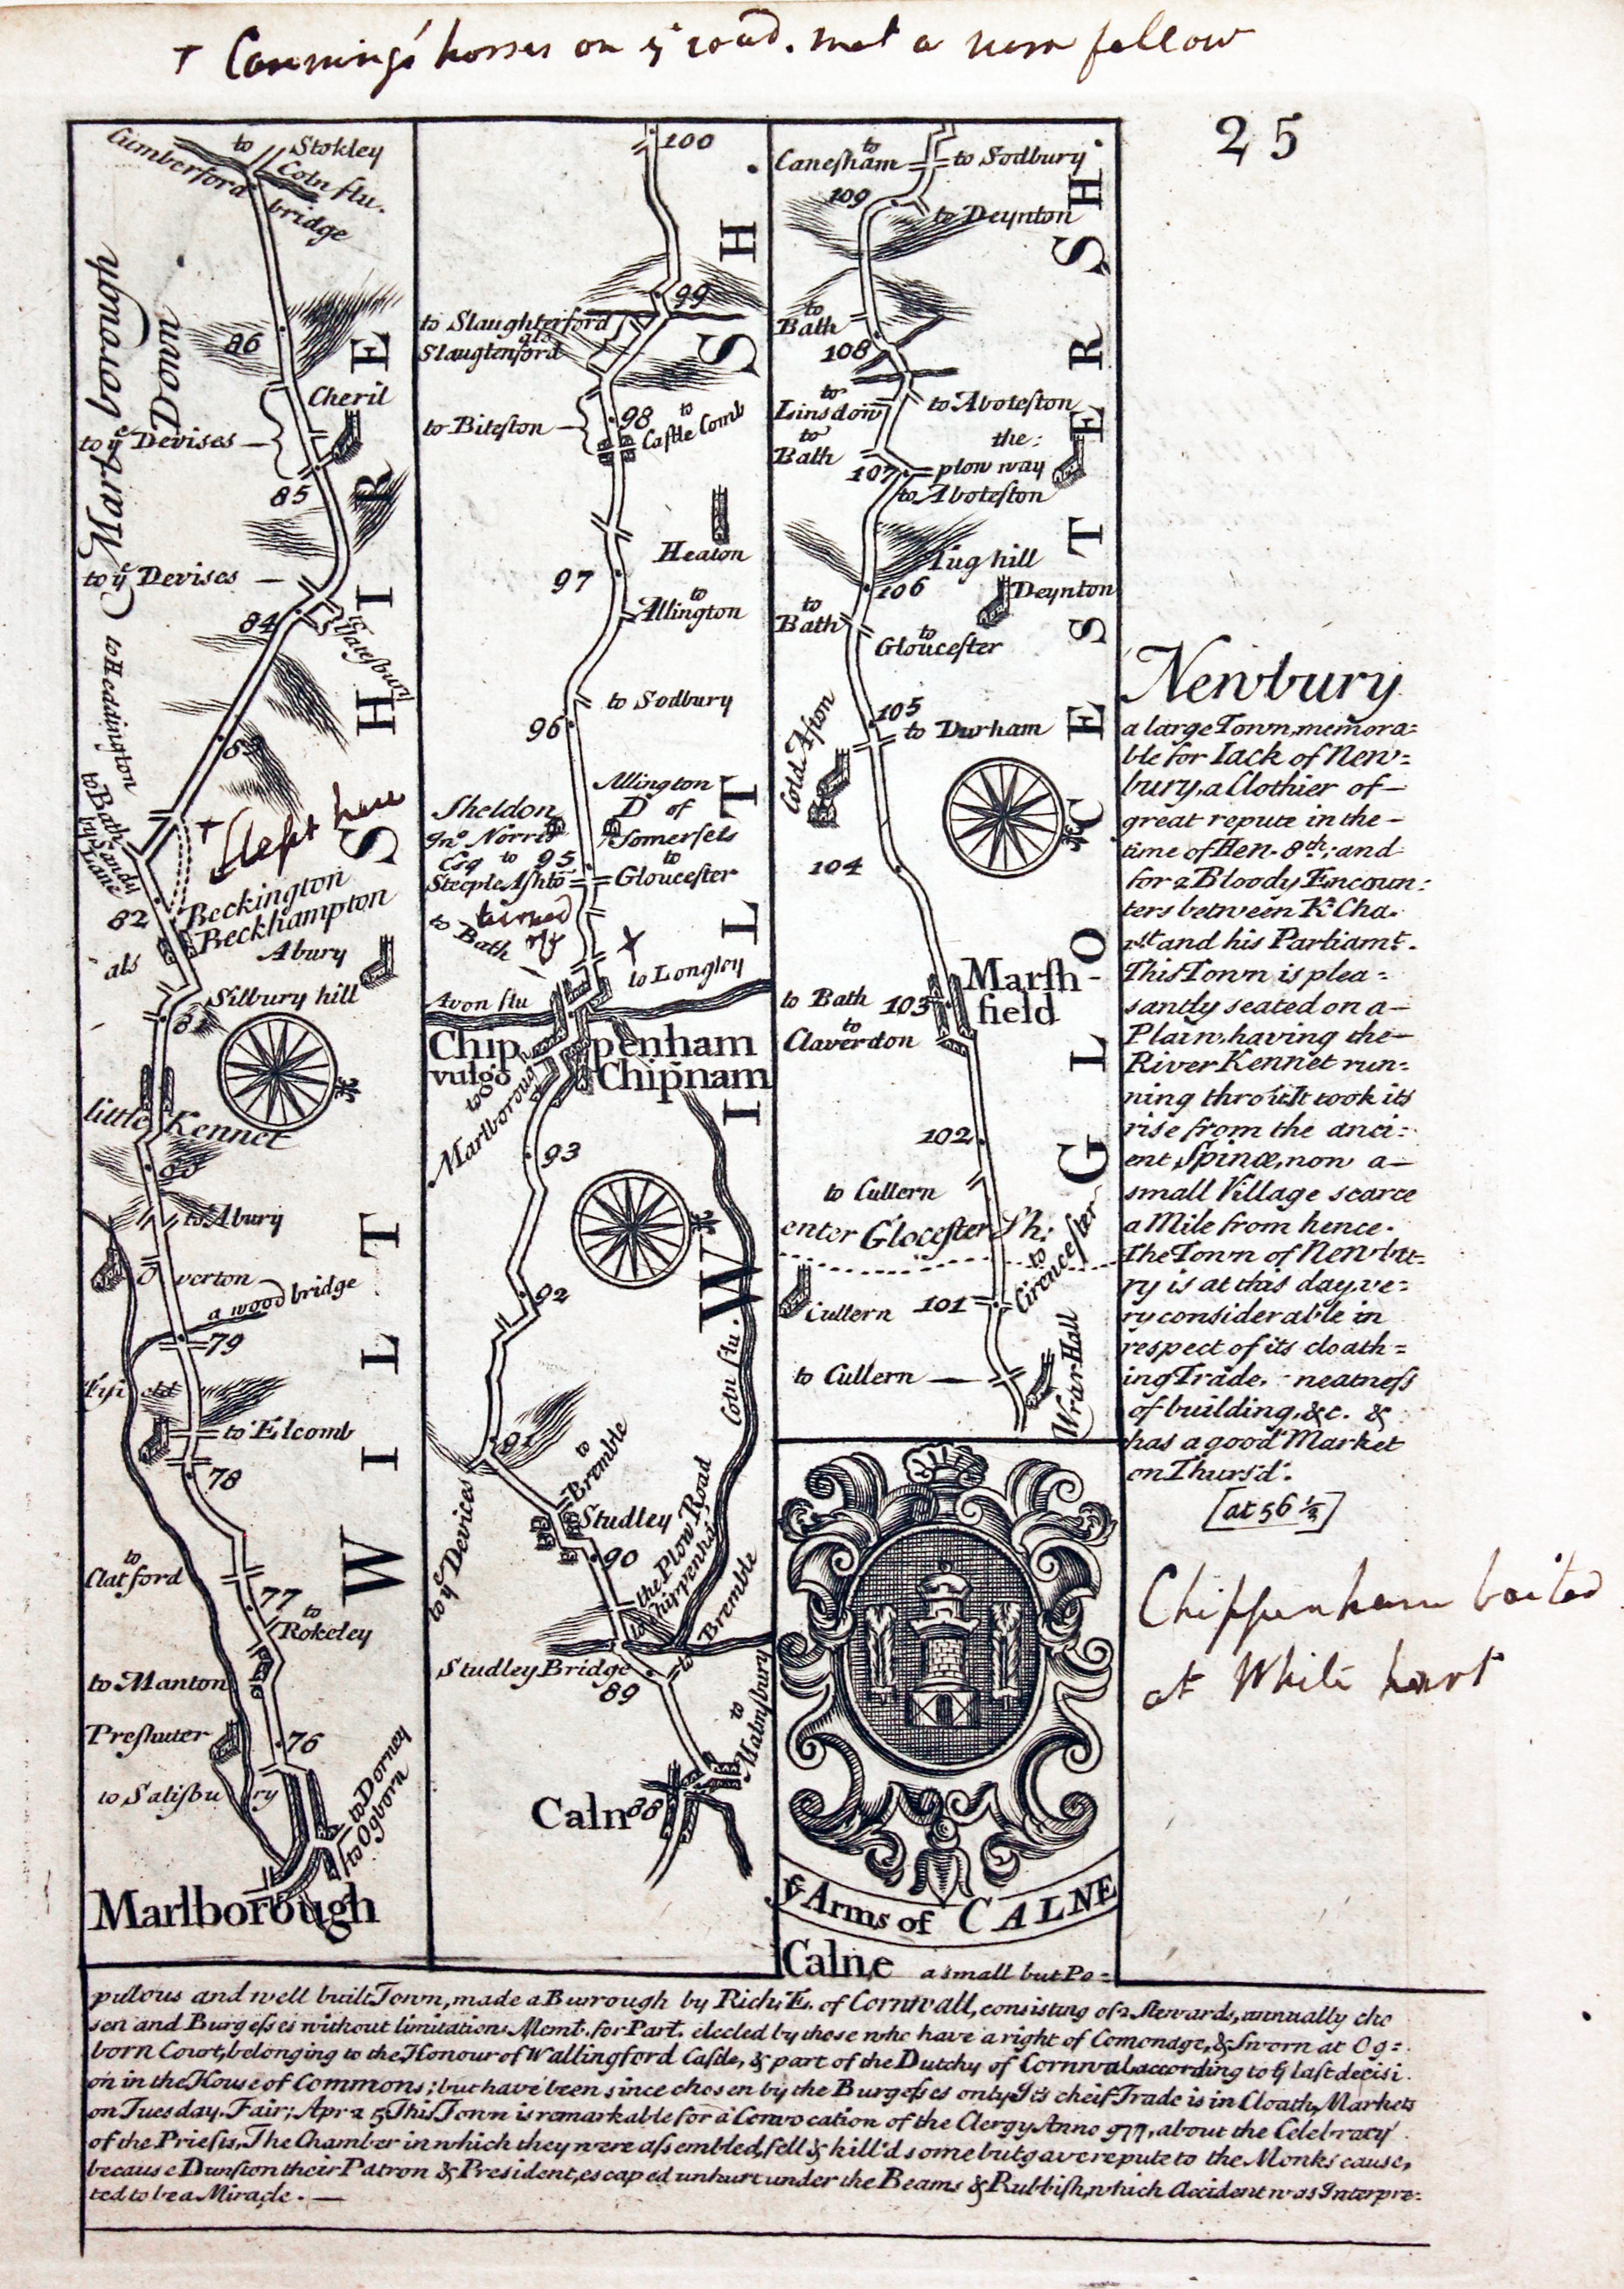 horses on yͤ road. met a
25
Cumberford
to Stokley
Coln flu.
bridge
Marlborough
Down
86
Cheril
to yͤ Devises
85
to yͤ Devises
84
to Yatesbury
to Headdington
83
to Bath
by Sandy
Lane
slept here
82
Beckington
als Beckhampton
Abury
Silbury hill
81
little Kennet
80
to Abury
Overton
a wood bridge
79
Fyfield
to Elcomb
78
to Clatford
77
to Rokeley
to Manton
Preshuter
76
to Salisbury
to Dorney
to Ogborn
Marlborough
WILTSHIRE
100
99
to Slaughterford
als
Slaugtenford
to Biteston
98
to Castle Comb
Heaton
97
to Allington
to Sodbury
96
Allington
D of
Somersets
Sheldon
Jnº Norris
Esq
to Steeple Ashtõ
95
to Gloucester
turned
to Bath
to Longley
Avon flu
Chippenham
vulgo Chipñam
to Marlboroug
93
92
91
to yͤ Devices
to Bremble
Studley
90
the Plow Road
to Chippenhã
Coln flu.
to Bremble
Studley Bridge
89
to Malmsbury
Caln 88
WILTSH
to Caneſham
to Sodbury
109
to Deynton
to Bath
108
to Linsdown
to Aboteſton
to Bath
the
plow way
107
to Aboteſton
Tug hill
106
Deynton
to Bath
to Glouceſter
105
to Durham
Cold Aſton
104
Marſh-
field
to Bath 103
to Claverdon
102
to Cullern
enter Gloceſter Sh:
to Cirenceſter
Cullern 101
to Cullern
Wrax Hall
GLOCESTERSH.
Newbury
a large Town, memora=
ble for Iack of New=
bury, a Clothier of
great repute in the
time of Hen. 8th; and
for 2 Bloody Encoun:
ters between K. Cha.
1st and his Parliamt.
This Town is plea=
santly seated on a
Plain, having the
River Kennet run:
ning thro' it. It took its
rise from the anci:
ent Spinæ, now a
small Village scarce
a Mile from hence.
The Town of Newbu=
ry is at this day, ve:
ry considerable in
respect of its cloath=
ing Trade, neatneſs
of building, &c. &
has a good Market
on Thursd.
[at 56 ½]
Chippenham baited
at White hart
yͤ Arms of CALNE
Calne a small but Po=
pulous and well built Town, made a Burrough by Rich. E. of Cornwall, consisting of 2 Stewards, annually cho
sen and Burgeſses without limitation. Memt. for Part. elected by those who have a right of Comonage, & Sworn at Og=
born Court, belonging to the Honour of Wallingford Caſtle, & part of the Dutchy of Cornwal according to yͤ laſt decisi
on in the House of Commons; but have been since chosen by the Burgeſses only. Its cheif Trade is in Cloath, Markets
on Tuesday. Fair; Apr 25 This Town is remarkable for a Convocation of the Clergy Anno 977, about the Celebracy
of the Prieſts, The Chamber in which they were aſsembled, fell & kill'd some but gave repute to the Monks cause,
because Dunſton their Patron & President, escaped unhurt under the Beams & Rubbiſh, which Accident was Interpre:
ted to be a Miracle.